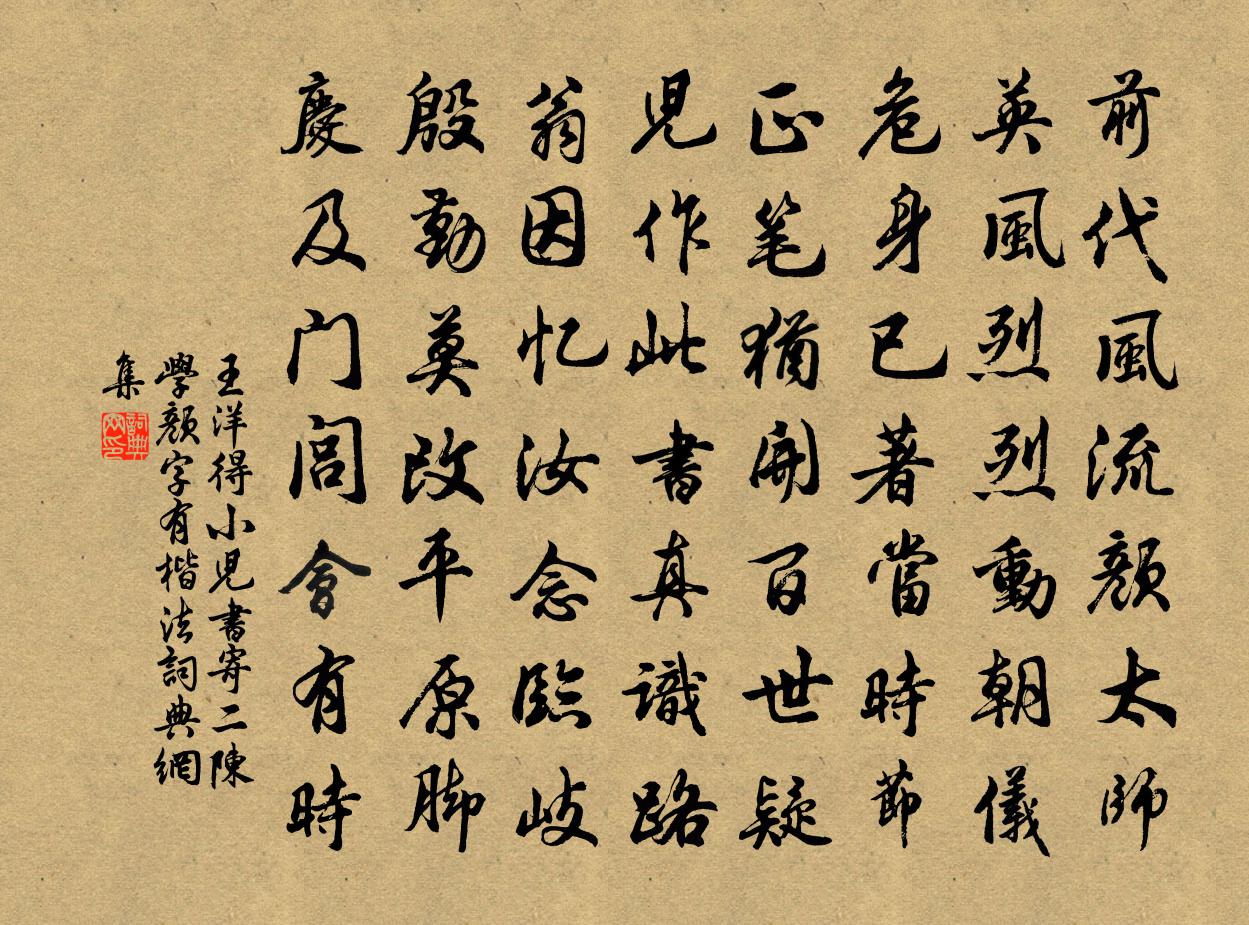 前代風流顏太師
英風烈烈動朝儀
危身已著當時節
正笔猶開百世疑
児作此書真識路
翁因忆汝念臨岐
殷勤莫改平原脚
慶及门闾會有時
王洋得小児書寄二陳
學顏字有楷法詞典網
集
詞典網印